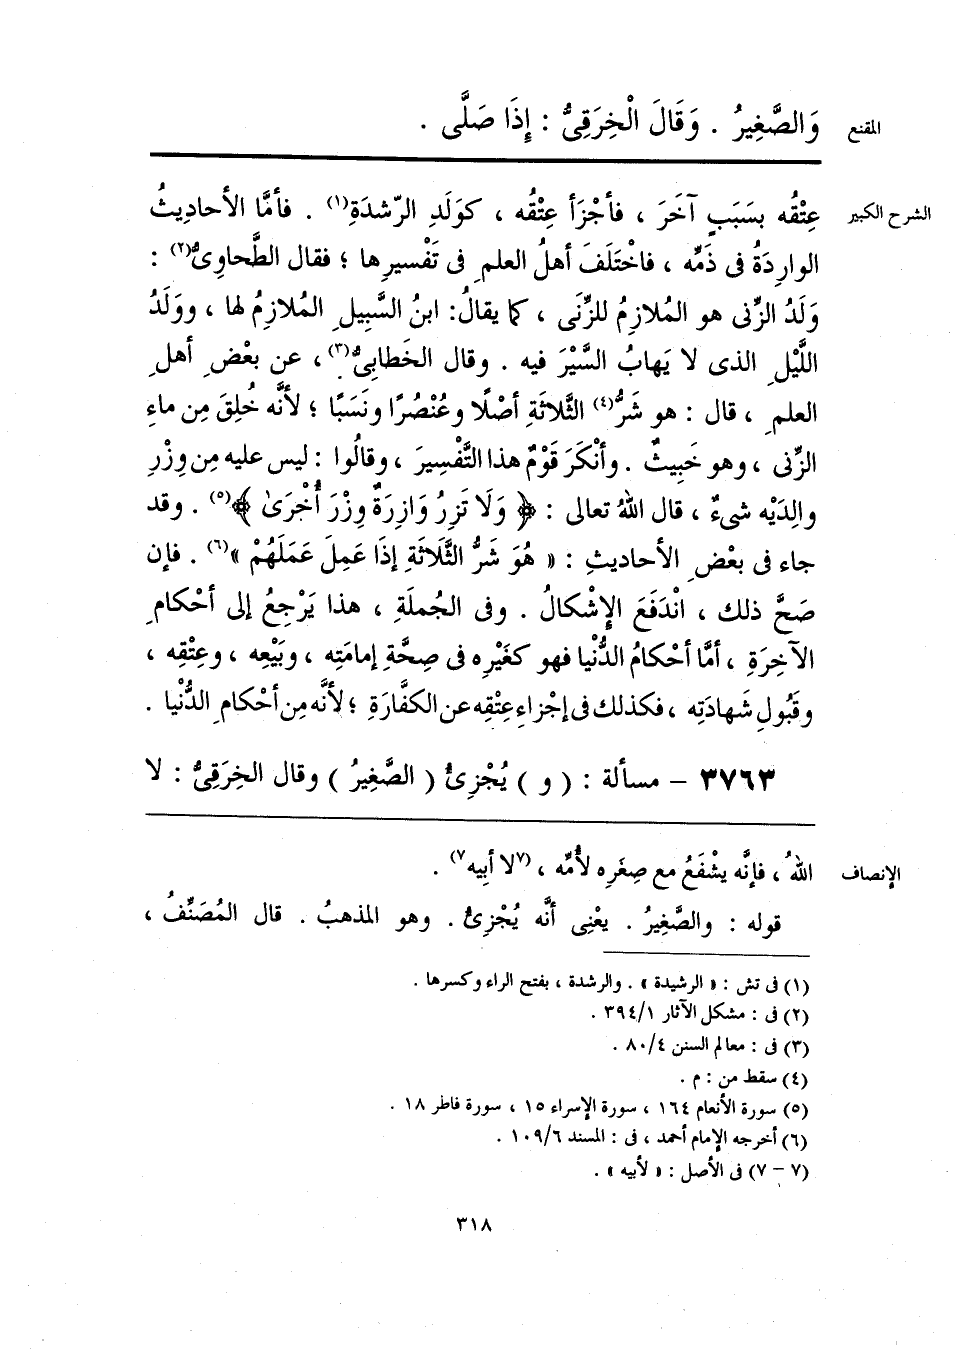 المقنع
وَالصَّغِيرُ . وَقَالَ الْخِرَقِىُّ : إِذَا صَلَّى .
الشرح الكبير
عِتْقُه بسَبَبٍ آخَرَ ، فأجْزَأ عِتْقُه ، كوَلَدِ الرّشدَةِ(١) . فأمَّا الأحادِيثُ
الوارِدَةُ فى ذَمِّه ، فاخْتَلَفَ أهلُ العلمِ فى تَفْسيرِها ؛ فقال الطَّحاوِىُّ(٢) :
وَلَدُ الزِّنى هو المُلازِمُ للزِّنَى ، كما يقالُ: ابنُ السَّبِيلِ المُلازِمُ لها ، ووَلَدُ
اللَّيْلِ الذى لا يَهابُ السَّيْرَ فيه . وقال الخَطابِىُّ(٣) ، عن بعْضِ أهلِ
العلمِ ، قال : هو شَرُّ(٤) الثَّلاثَةِ أصْلًا وعُنْصُرًا ونَسَبًا ؛ لأنَّه خُلِقَ مِن ماءِ
الزِّنى ، وهو خَبِيثٌ . وأنْكَرَ قَوْمٌ هذا التَّفْسِيرَ ، وقالُوا : ليس عليه مِن وِزْرِ
والِدَيْه شىءٌ ، قال اللهُ تعالى : ﴿ وَلَا تَزِرُ وَازِرَةٌ وِزْرَ أُخْرَىٰ ﴾(٥) . وقد
جاء فى بعْضِ الأحاديثِ : « هُوَ شَرُّ الثَّلَاثَةِ إذَا عَمِلَ عَمَلَهُمْ »(٦) . فإن
صَحَّ ذلك ، انْدَفَعَ الإِشْكالُ . وفى الجُملَةِ ، هذا يَرْجِعُ إلى أحْكامِ
الآخِرَةِ ، أمَّا أحْكامُ الدُّنْيا فهو كغَيْرِه فى صِحَّةِ إمامَتِه ، وبَيْعِه ، وعِتْقِه ،
وقَبُولِ شَهادَتِه ، فكذلك فى إجْزاءِ عِتْقِه عن الكفَّارَةِ ؛ لأنَّه مِن أحْكامِ الدُّنْيا .
٣٧٦٣ – مسألة : ( و ) يُجْزِئُ ( الصَّغِيرُ ) وقال الخِرَقِىُّ : لا
الإنصاف
اللهُ ، فإنَّه يشْفَعُ مع صِغَرِه لأُمِّه ، (٧لا أبِيه٧) .
قوله : والصَّغِيرُ . يعْنِى أنَّه يُجْزِئُ . وهو المذهبُ . قال المُصَنِّفُ ،
(١) فى تش : « الرشيدة » . والرشدة ، بفتح الراء وكسرها .
(٢) فى : مشكل الآثار ٣٩٤/١ .
(٣) فى : معالم السنن ٨٠/٤ .
(٤) سقط من : م .
(٥) سورة الأنعام ١٦٤ ، سورة الإسراء ١٥ ، سورة فاطر ١٨ .
(٦) أخرجه الإمام أحمد ، فى : المسند ١٠٩/٦ .
(٧ – ٧) فى الأصل : « لأبيه » .
٣١٨